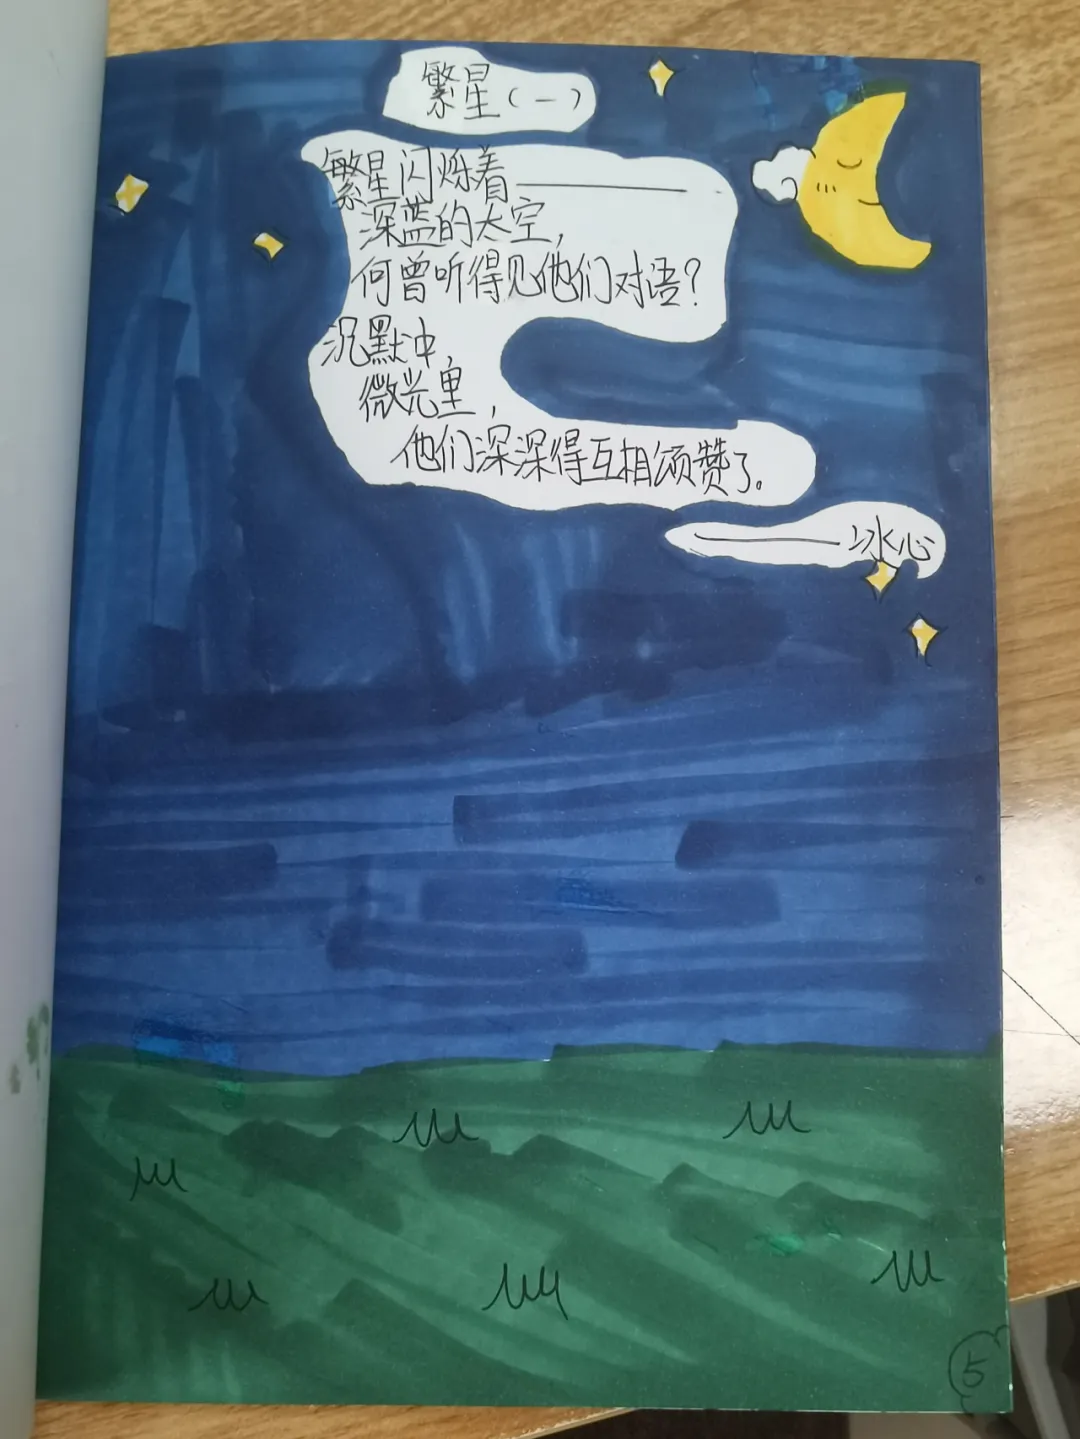 繁星（一）
繁星闪烁着——
深蓝的太空，
何曾听得见他们对语？
沉默中，
微光里，
他们深深得互相颂赞了。
——冰心
5